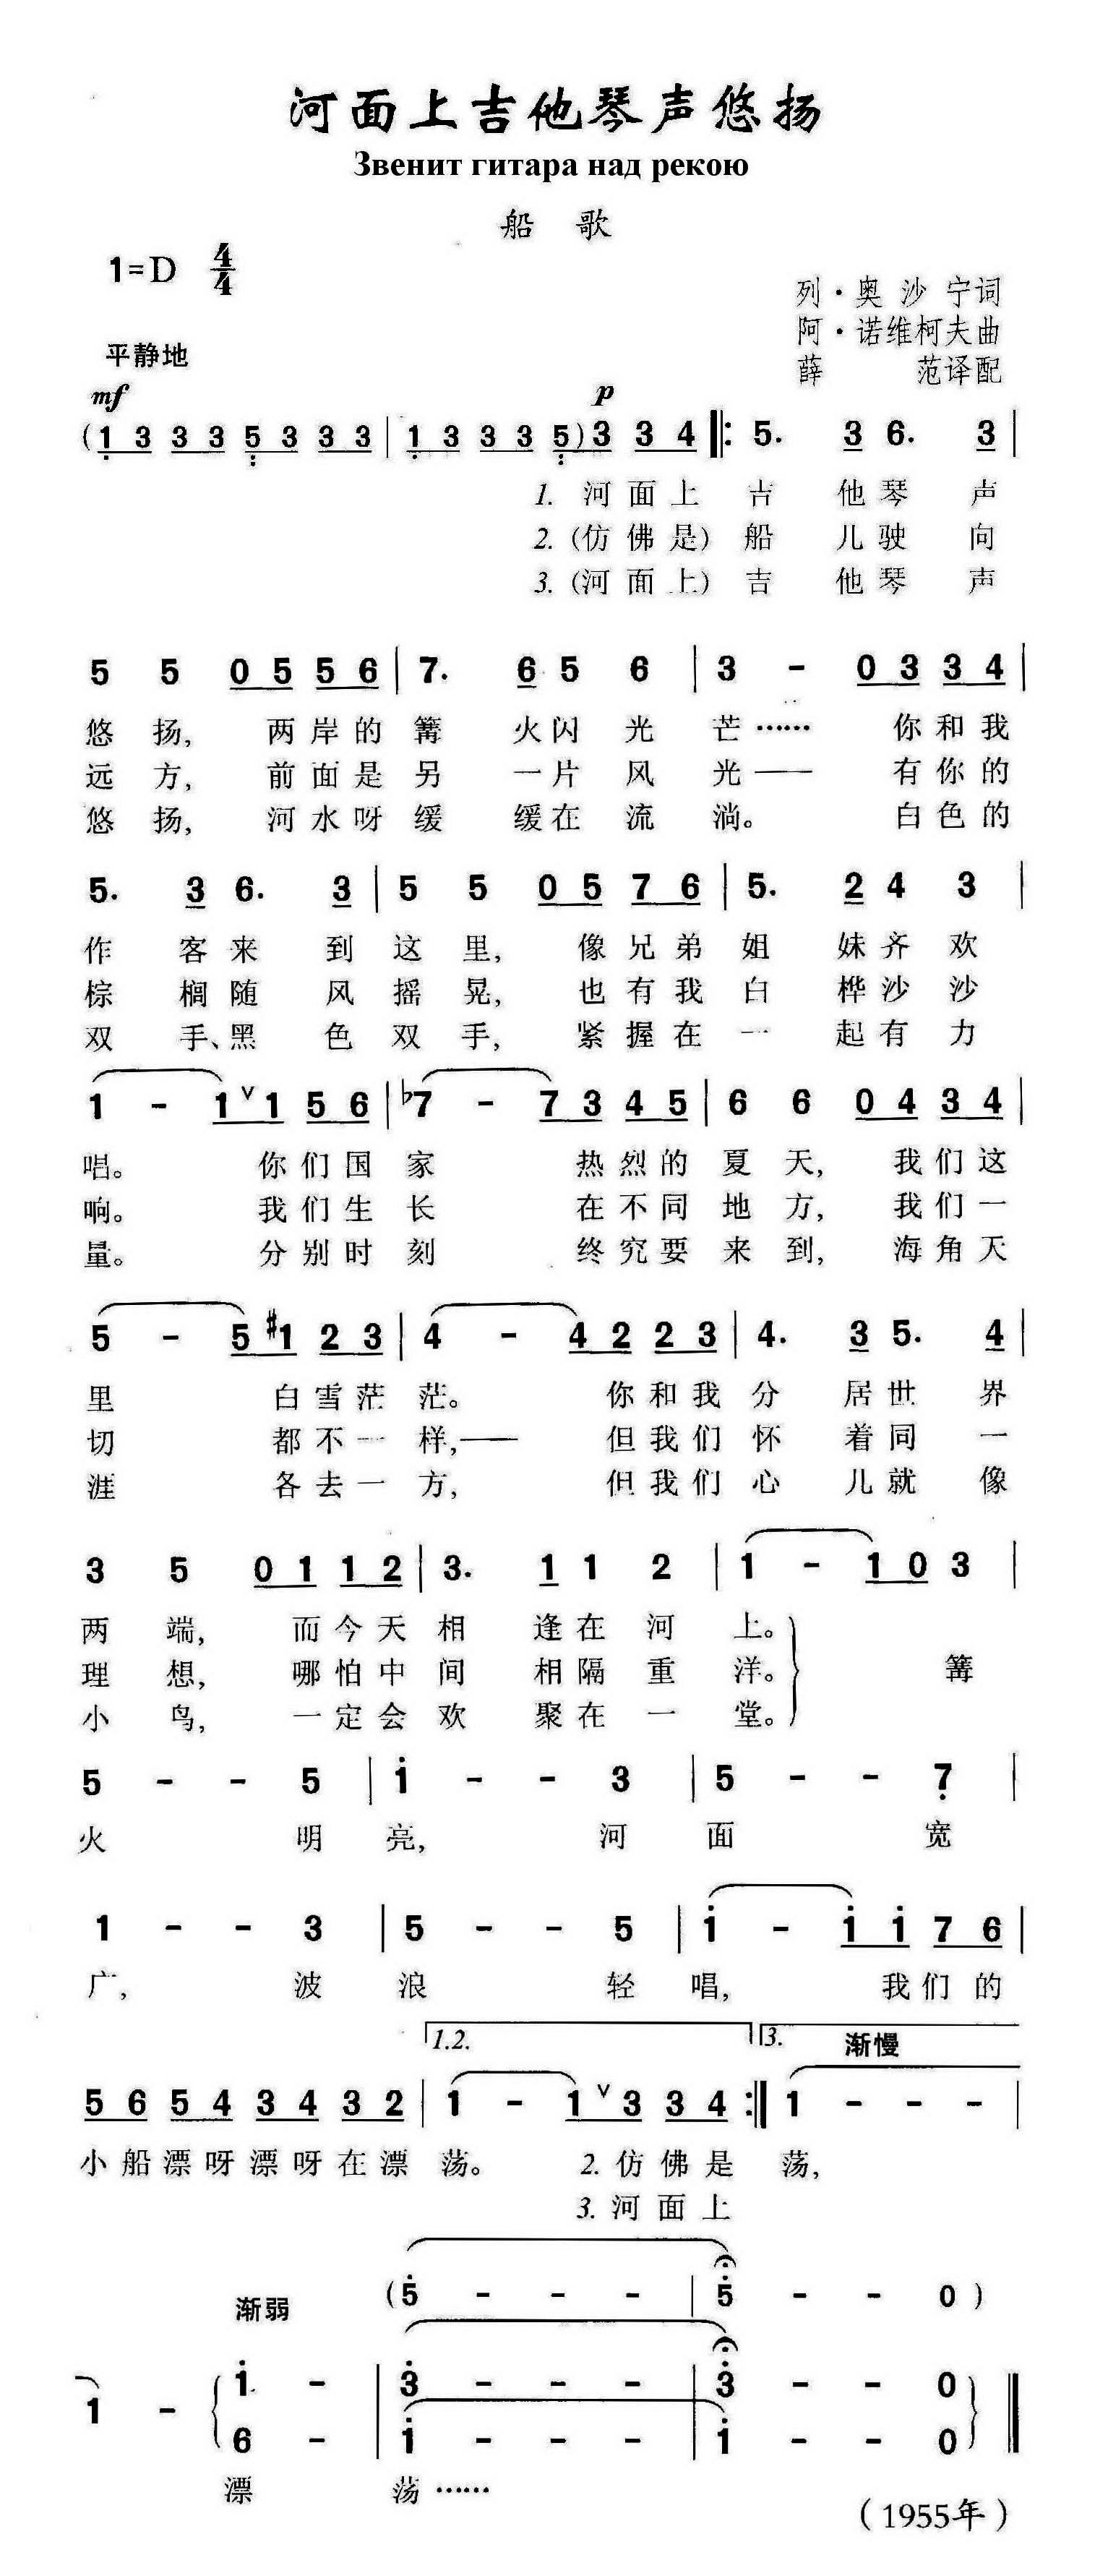 河面上吉他琴声悠扬
Звенит гитара над рекою
船 歌
1=D 4/4
列·奥沙宁词
阿·诺维柯夫曲
薛 范译配
平静地
mf p
(1 3 3 3 5 3 3 3 | 1 3 3 3 5) 3 3 4 ‖: 5. 3 6. 3 |
1. 河面上 吉 他琴 声
2. (仿佛是) 船 儿驶 向
3. (河面上) 吉 他琴 声
5 5 0 5 5 6 | 7. 6 5 6 | 3 - 0 3 3 4 |
悠 扬, 两岸的 篝 火闪 光 芒…… 你和我
远 方, 前面是 另 一片 风 光—— 有你的
悠 扬, 河水呀 缓 缓在 流 淌。 白色的
5. 3 6. 3 | 5 5 0 5 7 6 | 5. 2 4 3 |
作 客来 到 这 里, 像兄弟 姐 妹齐 欢
棕 榈随 风 摇 晃, 也有我 白 桦沙 沙
双 手、黑 色 双 手, 紧握在 一 起有 力
1 - 1 ∨ 1 5 6 | ♭7 - 7 3 4 5 | 6 6 0 4 3 4 |
唱。 你们国 家 热烈的 夏 天, 我们这
响。 我们生 长 在不同 地 方, 我们一
量。 分别时 刻 终究要 来 到, 海角天
5 - 5 ♯1 2 3 | 4 - 4 2 2 3 | 4. 3 5. 4 |
里 白雪茫 茫。 你和我 分 居世 界
切 都不一 样,—— 但我们 怀 着同 一
涯 各去一 方, 但我们 心 儿就 像
3 5 0 1 1 2 | 3. 1 1 2 | 1 - 1 0 3 |
两 端, 而今天 相 逢在 河 上。
理 想, 哪怕中 间 相隔 重 洋。 篝
小 鸟, 一定会 欢 聚在 一 堂。
5 - - 5 | 1̇ - - 3 | 5 - - 7̣ |
火 明 亮, 河 面 宽
1 - - 3 | 5 - - 5 | 1̇ - 1̇ 1̇ 7 6 |
广, 波 浪 轻 唱, 我们的
1.2. 3. 渐慢
5 6 5 4 3 4 3 2 | 1 - 1 ∨ 3 3 4 :‖ 1 - - - |
小船漂呀漂呀在漂 荡。 2. 仿佛是 荡,
3. 河面上
渐弱 (5̇ - - - | 5̇ - - 0)
1 - 1̇ - | 3̇ - - - | 3̇ - - 0 ‖
6 - | 1̇ - - - | 1̇ - - 0
漂 荡……
(1955年)